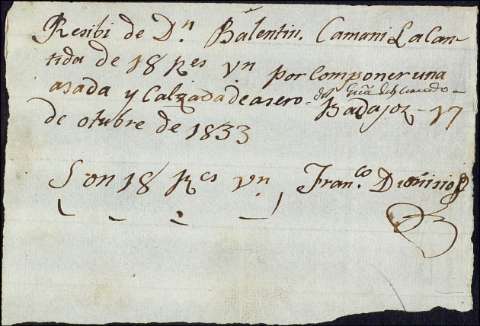 Resibi de Dn. Balentin. Camani La Can-
tida de 18 Res vn por Componer una
asada y Calzada de asero - del
Badajoz - 17
de otubre de 1833
Son 18 Res vn Franco. Dionisio